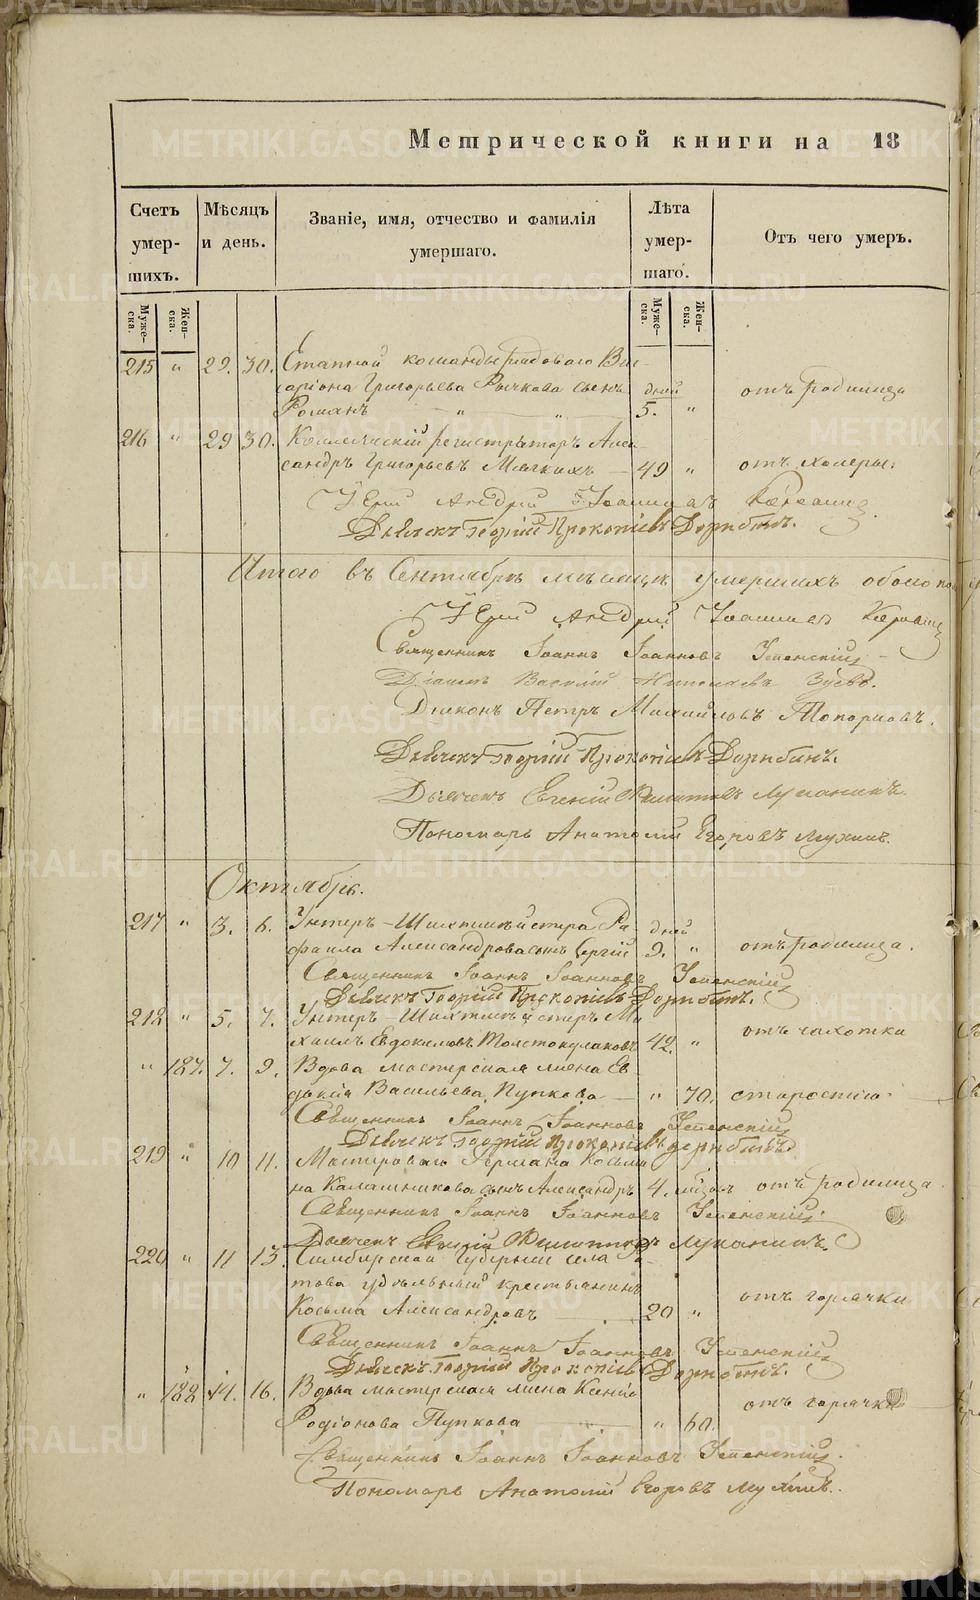 Метрической книги на 18
Счетъ умер-шихъ.
Мѣсяцъ и день.
Званіе, имя, отчество и фамилія умершаго.
Лѣта умер-шаго.
Отъ чего умеръ.
Муже-ска.
Жен-ска.
Муже-ска.
Жен-ска.
215 " 29. 30. Статной команды рядоваго Вис-
аріона Григорьева Рычкова сынъ дней отъ родимца
Романъ " " 5. "
216 " 29 30. Коллежскій регистраторъ Алек-
сандръ Григорьевъ Мягкихъ 49 " отъ холеры.
Іерей Андрей Іоанновъ
Дьячекъ Георгій Прокопіевъ Дерябинъ.
Итого въ Сентябрѣ мѣсяцѣ умершихъ обоего по
Іерей Андрей Іоанновъ
Священникъ Іоаннъ Іоанновъ Успенскій
Діаконъ Василій Николаевъ Зуевъ.
Діаконъ Петръ Михайловъ Топорковъ.
Дьячекъ Георгій Прокопіевъ Дерябинъ.
Дьячекъ Евгеній Филиповъ Луканинъ.
Пономарь Анатолій Егоровъ Мухинъ.
Октябрь.
217 " 3. 6. Унтеръ-Шихтмейстера Ра- дней
фаила Александрова сынъ Сергій 9. " отъ родимца.
Священникъ Іоаннъ Іоанновъ Успенскій
Дьячекъ Георгій Прокопіевъ Дерябинъ.
218 " 5. 7. Унтеръ-Шихтмейстеръ Ми- отъ чахотки
хаилъ Евдокимовъ Толстокулаковъ 42. "
" 187. 7. 9. Вдова мастерская жена Ев-
докія Васильева Пупкова " 70. старостію.
Священникъ Іоаннъ Іоанновъ Успенскій
Дьячекъ Георгій Прокопіевъ Дерябинъ
219 " 10 11. Мастероваго Германа Косьми-
на Калашникова сынъ Александръ 4. мѣсяцъ отъ родимца.
Священникъ Іоаннъ Іоанновъ Успенскій.
Дьячекъ Евгеній Филиповъ Луканинъ.
220 " 11 13. Симбирской Губерніи села
удѣльный крестьянинъ отъ горячки
Косьма Александровъ 20 "
Священникъ Іоаннъ Іоанновъ Успенскій
Дьячекъ Георгій Прокопіевъ Дерябинъ.
" 188 14. 16. Вдова мастерская жена Ксенія отъ горячки
Родіонова Пупкова " 60.
Священникъ Іоаннъ Іоанновъ Успенскій.
Пономарь Анатолій Егоровъ Мухинъ.
METRIKI.GASO-URAL.RU